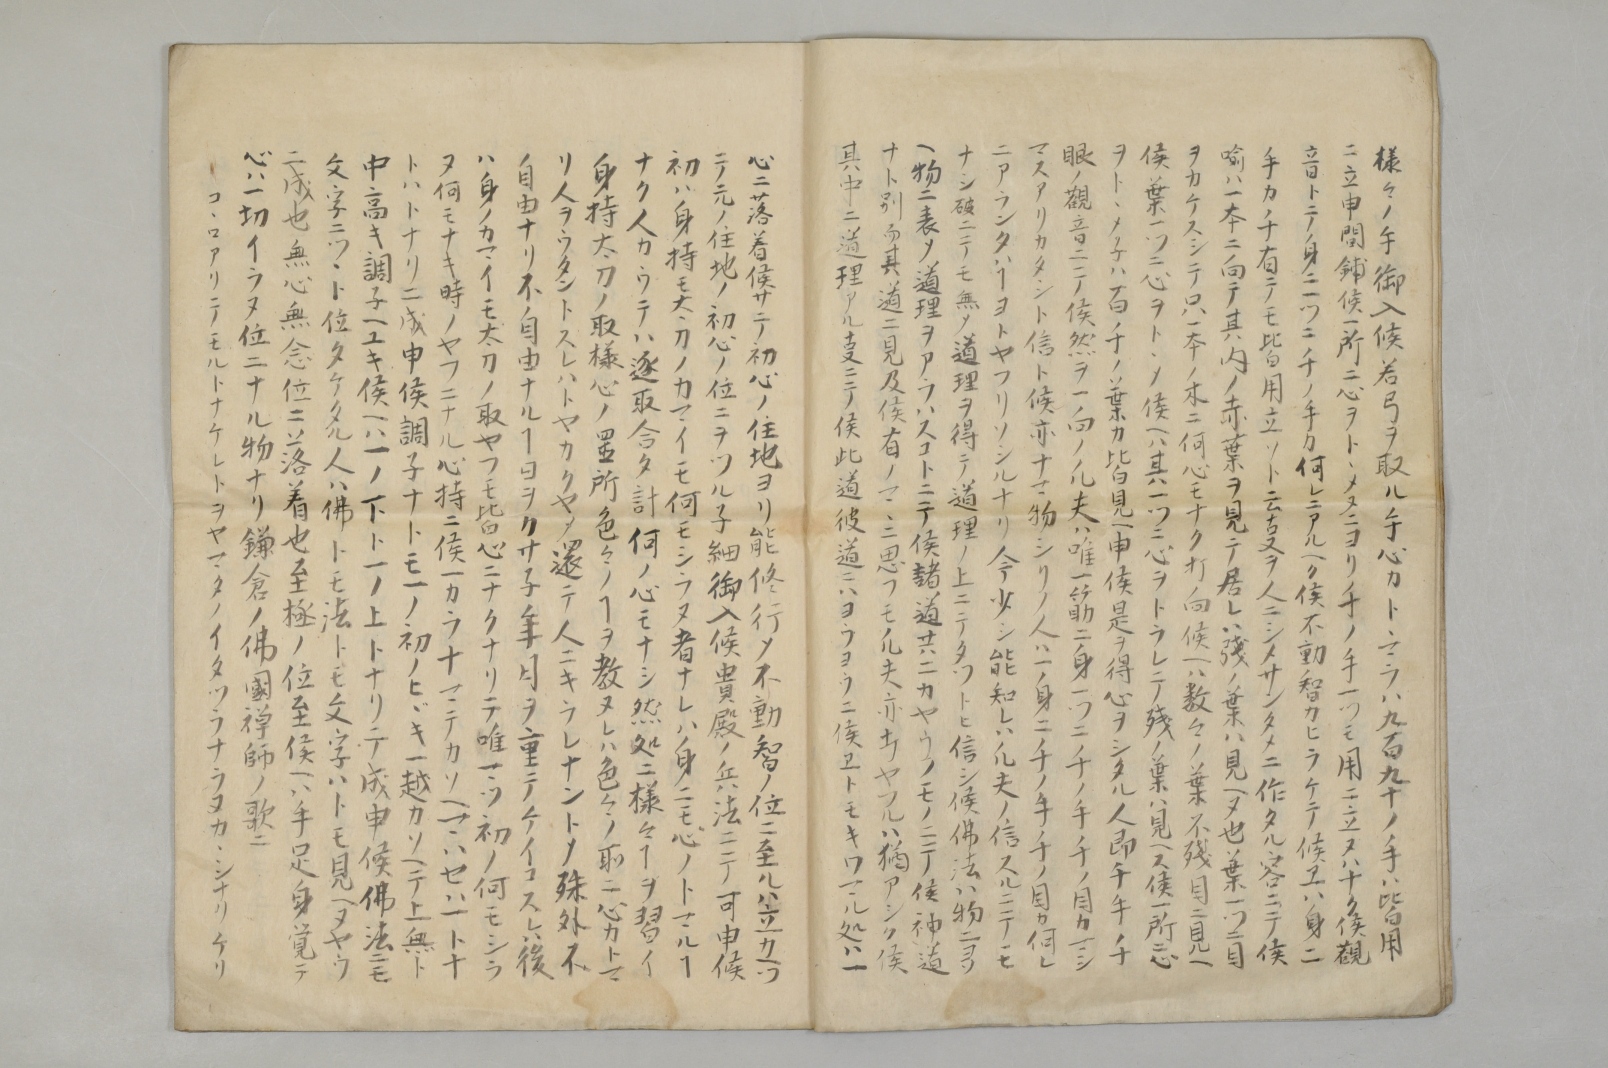 様々ノ手御入候若弓ヲ取ル手心カトヽマラハ九百九十ノ手ハ皆用
ニヽ立申間鋪候一所ニ心ヲトヽメヌニヨリ千ノ手一ツモ用ニ立ヌハナク候観
音トテノ身ニ一ツニ千ノ手カ何レニアルヘク候不動智カヒラケテ候ヱハ身ニ
手カ千有ニテモ皆用立ソト云支ヲ人ニシメサンタメニ作タル容ニテ候
喩ハ一本ニ向テ其内ノ赤葉ヲ見テ居レハ残ノ葉ハ見ヘヌ也葉一ツニ目
ヲカケスシテ只一本ノ木ニ何心モナク打向候ヘハ数々ノ葉不残目ニ見ヘ
候葉一ツニ心ヲトヽメ候ヘハ其一ツニ心ヲトラレテ残ノ葉ハ見ヘス候一所ニ心
ヲトヽメ子ハ百千ノ葉カ皆見ヘ申候是ヲ得心ヲシタル人即千手千
眼ノ観音ニテ候然ヲ一向ノ凡夫ハ唯一筋ニ身一ツニ千ノ手千ノ目カマシ
マスアリカタシト信ト候亦ナマ物シリノ人ハ一ノ身ニ千ノ手千ノ目カ何レ
ニアランタハ丁ヨトヤフリソシルナリ今少シ能知レハ凡夫ノ信スルニテモ
ナシ破ニテモ無ノ道理ヲ得テ道理ノ上ニテタツトヒ信シ候佛法ハ物ニヨソ
ヘ物ニ表メ道理ヲアラハスコトニテ候諸道共ニカヤウノモノニテ候神道
ナト別而其道ニ見及候有ノマヽニ思フモ凡夫亦打ヤフルハ猶アシク候
其中ニ道理アル支ニテ候此道彼道ニハヨウヨウニ候ヱトモキワマル処ハ一
心ニ落着候サテ初心ノ住地ヨリ能修行メ不動智ノ位ニ至ルハ立カヘツ
テ元ノ住地ノ初心ノ位ニヲツル子細御入候貴殿ノ兵法ニテ可申候
初ハ身持モ太刀ノカマイモ何モシラヌ者ナレハ身ニモ心ノトマル丁
ナク人カウテハ逐取合タ計何ノ心モナシ然処ニ様々丁ヲ習イ
身持太刀ノ取様心ノ置所色々ノ丁ヲ教ヌレハ色々ノ取ニ心カトマ
リ人ヲウタントスレハトヤカクヤメ還テ人ニキラレナントメ殊外不
自由ナリ不自由ナル丁日ヲクサ子年月ヲ重テケイコスレハ後
ハ身ノカマイモ太刀ノ取ヤフモ皆心ニナクナリテ唯一ツ初ノ何モシラ
ヌ何モナキ時ノヤフニナル心持ニ候一カラ十マテカソヘマハセハ一ト十
トハトナリニ成申候調子ナトモ一ノ初ノヒヾキ一越カソヘテ上無ト
申高キ調子ヘユキ候ヘハ一ノ下ト一ノ上トナリニテ成申候佛法ニモ
文字ニツヽト位タケタル人ハ佛トモ法トモ文字ハトモ見ヘヌヤウ
ニ成也無心無念位ニ落着也至極ノ位至候ヘハ手足身覚テ
心ハ一切イラヌ位ニナル物ナリ鎌倉ノ佛國禅師ノ歌ニ
コヽロアリテモルトナケレトヲヤマタノイタツラナラヌカヽシナリケリ